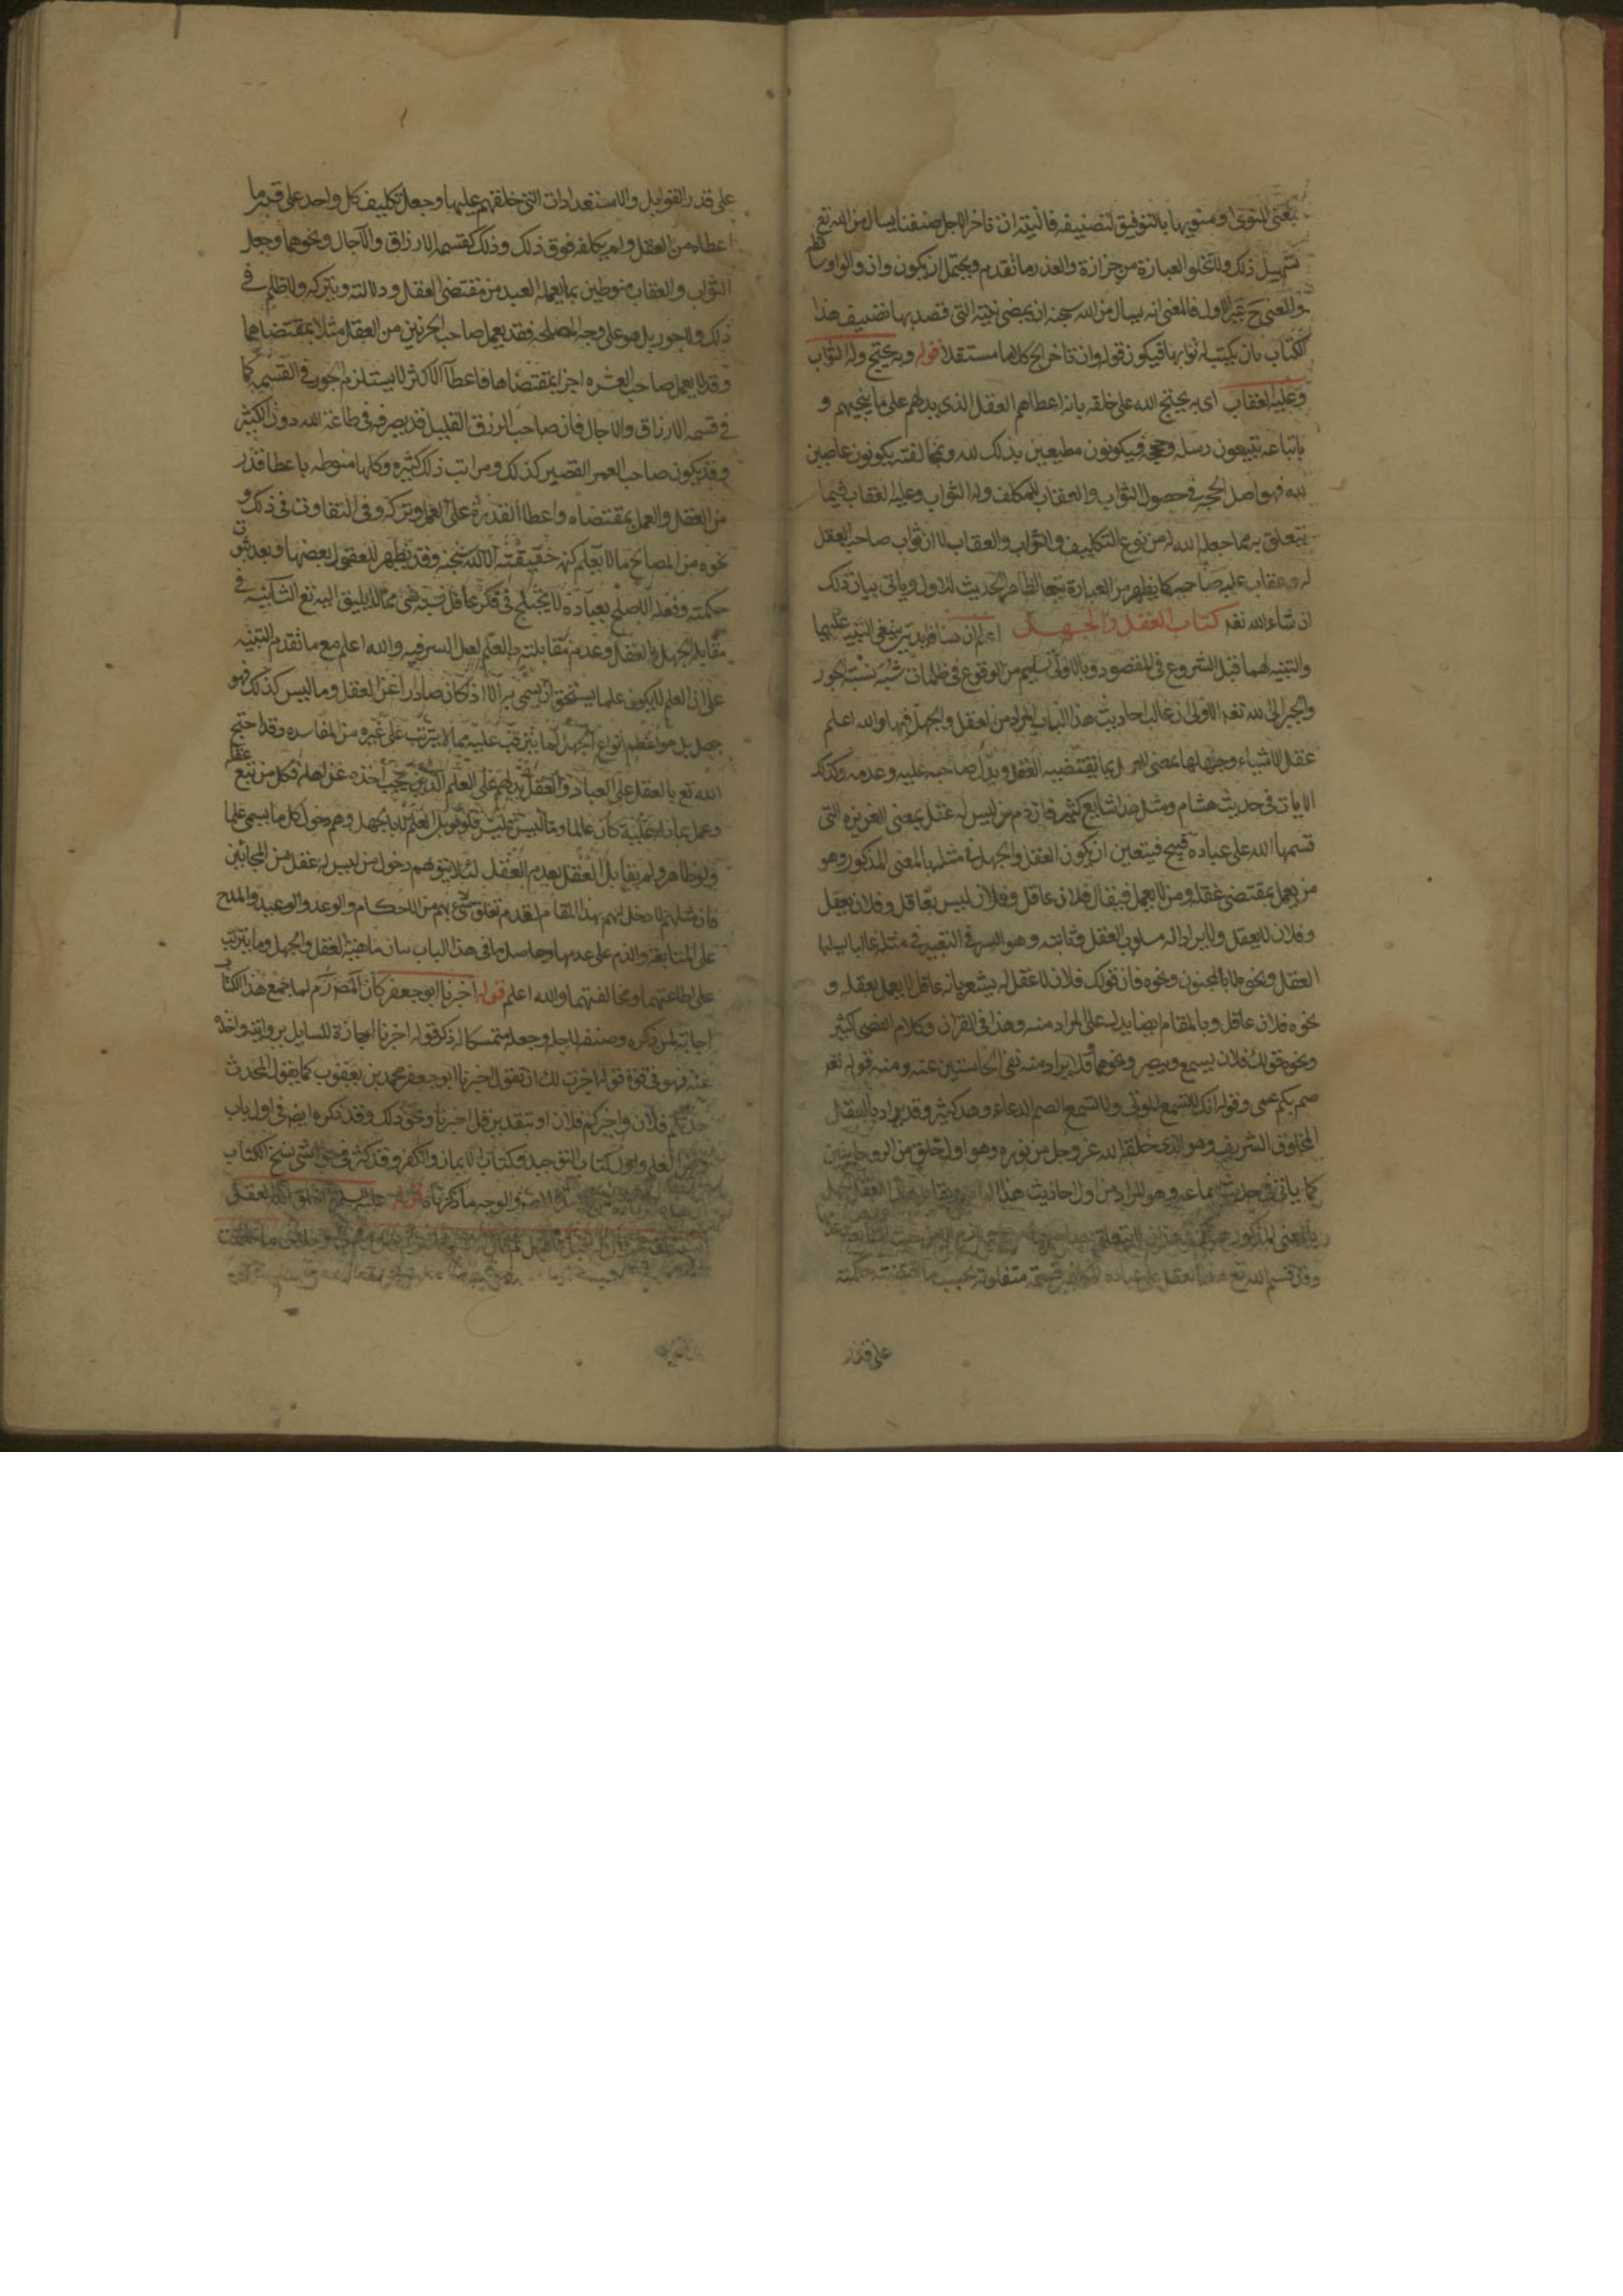 بمعنى المنوى او منويها بالتوفيق لتصنيفه فالنية ان تاخر الاجل صنفنا يسال من الله تع
تسهيل ذلك ولا تخلو العبارة من حزازة والعذر ما تقدم ويحتمل ان يكون وان والواو
والمعنى ح غير الاول فالمعنى انه يسال من الله سبحنه ان يمضى نيته التى قصد بها تصنيف هذا
الكتاب بان يكتب له ثوابها فيكون قوله وان تاخر الخ كلاما مستقلا قوله وبه يحتج وله الثواب
وعليه العقاب اى به يحتج الله على خلقه بانه اعطاهم العقل الذى يدلهم على ما ينجيهم و
باتباعه يتبعون رسله وحججه فيكونون مطيعين بذلك لله وبمخالفته يكونون عاصين
لله فهو اصل الحجة فى حصول الثواب والعقاب للمكلف وله الثواب وعليه العقاب فيما
يتعلق به مما جعله الله له من نوع التكاليف والثواب والعقاب لا ان ثواب صاحب العقل
له وعقاب عليه صاحبه كما يظهر من العبارة تبعا لظاهر الحديث الاول وياتى بيان ذلك
ان شاء الله تعه كتاب العقل والجهل اعلم ان هنا فايدتين ينبغى التنبيه عليهما
والتنبه لهما قبل الشروع فى المقصود وبالاولى تسليم من الوقوع فى ظلمات شبه نسبة الجور
والجبر الى الله تعه الاولى ان غالب احاديث هذا الباب المراد من العقل والجهل فيها والله اعلم
عقل الاشياء وجهلها بمعنى العمل بما يقتضيه العقل ويدل صاحبه عليه وعدمه وكذلك
الايات فى حديث هشام ومثل هذا شايع كثير فان ذم من ليس له عقل بمعنى الغريزه التى
قسمها الله على عباده قبيح فيتعين ان يكون العقل والجهل فى مثله بالمعنى المذكور وهو
من يعمل بمقتضى عقله ومن لا يعمل فيقال فلان عاقل وفلان ليس بعاقل وفلان يعقل
وفلان لا يعقل ولا يراد اله مسلوب العقل وثابته وهو السر فى التعبير فى مثله غالبا
العقل ونحو ها بالمجنون ونحوه فان قولك فلان لا عقل له يشعر بانه عاقل لا يعمل بعقله و
نحوه فلان عاقل وبالمقام ايضا يدل على المراد منه وهذا فى القران وكلام الفصحى كثير
ونحوه قولك فلان يسمع ويبصر ونحوهما وقد لا يراد منه نفى الحاستين عنه ومنه قوله تعه
صم بكم عمى وقوله انك لا تسمع الموتى ولا تسمع الصم الدعاء وهذا كثير وقد يراد بالعقل
المخلوق الشريف وهو الذى خلقه الله عز وجل من نوره وهو اول خلق من الروحانيين
كما ياتى فى حديث سماعه وهو المراد من اول احاديث هذا
بالمعنى المذكور
وقد قسم الله تع العقل على عباده متفاوته بحسب ما اقتضته حكمته
على قدر
على قدر القوابل والاستعدادات التى خلقهم عليها وجعل تكليف كل واحد على قدر ما
اعطاه من العقل ولم يكلفه فوق ذلك وذلك كقسمه الارزاق والآجال ونحوهما وجعل
الثواب والعقاب منوطين بما يعمله العبد من مقتضى العقل ودلالته وبتركه ولا ظلم فى
ذلك ولا جور بل هو على وجه المصلحه فقد يعمل صاحب الجزئين من العقل مثلا بمقتضاهما
وقد لا يعمل صاحب العشره اجزا بمقتضاها فاعطا الاكثر لا يستلزم الجور فى القسمه كما
فى قسمه الارزاق والاجال فان صاحب الرزق القليل قد يصرفه فى طاعة الله دون الكثير
وقد يكون صاحب العمر القصير كذلك ومراتب ذلك كثيره وكلها منوطه باعطا قدر
من العقل والعمل بمقتضاه واعطا القدرة على العمل وتركه وفى التفاوت فى ذلك و
نحوه من المصالح ما لا يعلم كنه حقيقته الا الله سبحنه وقد يظهر للعقول بعضها وبعد ثبوت
حكمته وفعله الاصلح بعباده لا يختلج فى فكر عاقل نسبة شى مما لا يليق اليه تع الثانيه فى
مقابلة الجهل بالعقل وعدم مقابلته بالعلم لعل السر فيه والله اعلم مع ما تقدم التنبيه
على ان العلم لا يكون علما يستحق ان يسمى به الا اذا كان صادرا عن العقل وما ليس كذلك فهو
جهل بل هو اعظم انواع الجهل لما يترتب عليه مما لا يترتب على غيره من المفاسد وقد احتج
الله تع بالعقل على العباد والعقل يدلهم على العلم الذى يجب اخذه عن اهله فكل من تبع عقله
وعمل بما دله عليه كان عالما ومن ليس فليس فلو قوبل العلم بالجهل وهم دخول كل ما يسمى علما
ولو ظاهرا ولم يقابل العقل بعدم العقل لئلا يتوهم دخول من ليس له عقل من المجانين
فان مثلهم لا دخل لهم بهذا المقام لعدم تعلق شىء بهم من الاحكام والوعد والوعيد والمدح
على المتابعة والذم على عدمها وحاصل ما فى هذا الباب بيان ماهية العقل والجهل وما يترتب
على اطاعتهما ومخالفتهما والله اعلم قوله اخبرنا ابو جعفر كان المصنف رَه لما جمع هذا الكتاب
اجابة لمن ذكره وصنفه لاجله وجعله متمسكا له ذكر قوله اخبرنا اجازة للسايل بروايته واخذه
عنه فهو فى قوة قوله اجزت لك ان تقول اخبرنا ابو جعفر محمد بن يعقوب كما يقول المحدث
حدثكم فلان واخبركم فلان او بتقدير قل اخبرنا ونحو ذلك وقد ذكره ايض فى اول باب
فرض العلم واول كتاب التوحيد وكتاب الايمان والكفر وقد كثر فى حواشى نسخ الكتاب
والوجه ما ذكرناه قوله عليه السلم لما خلق الله العقل